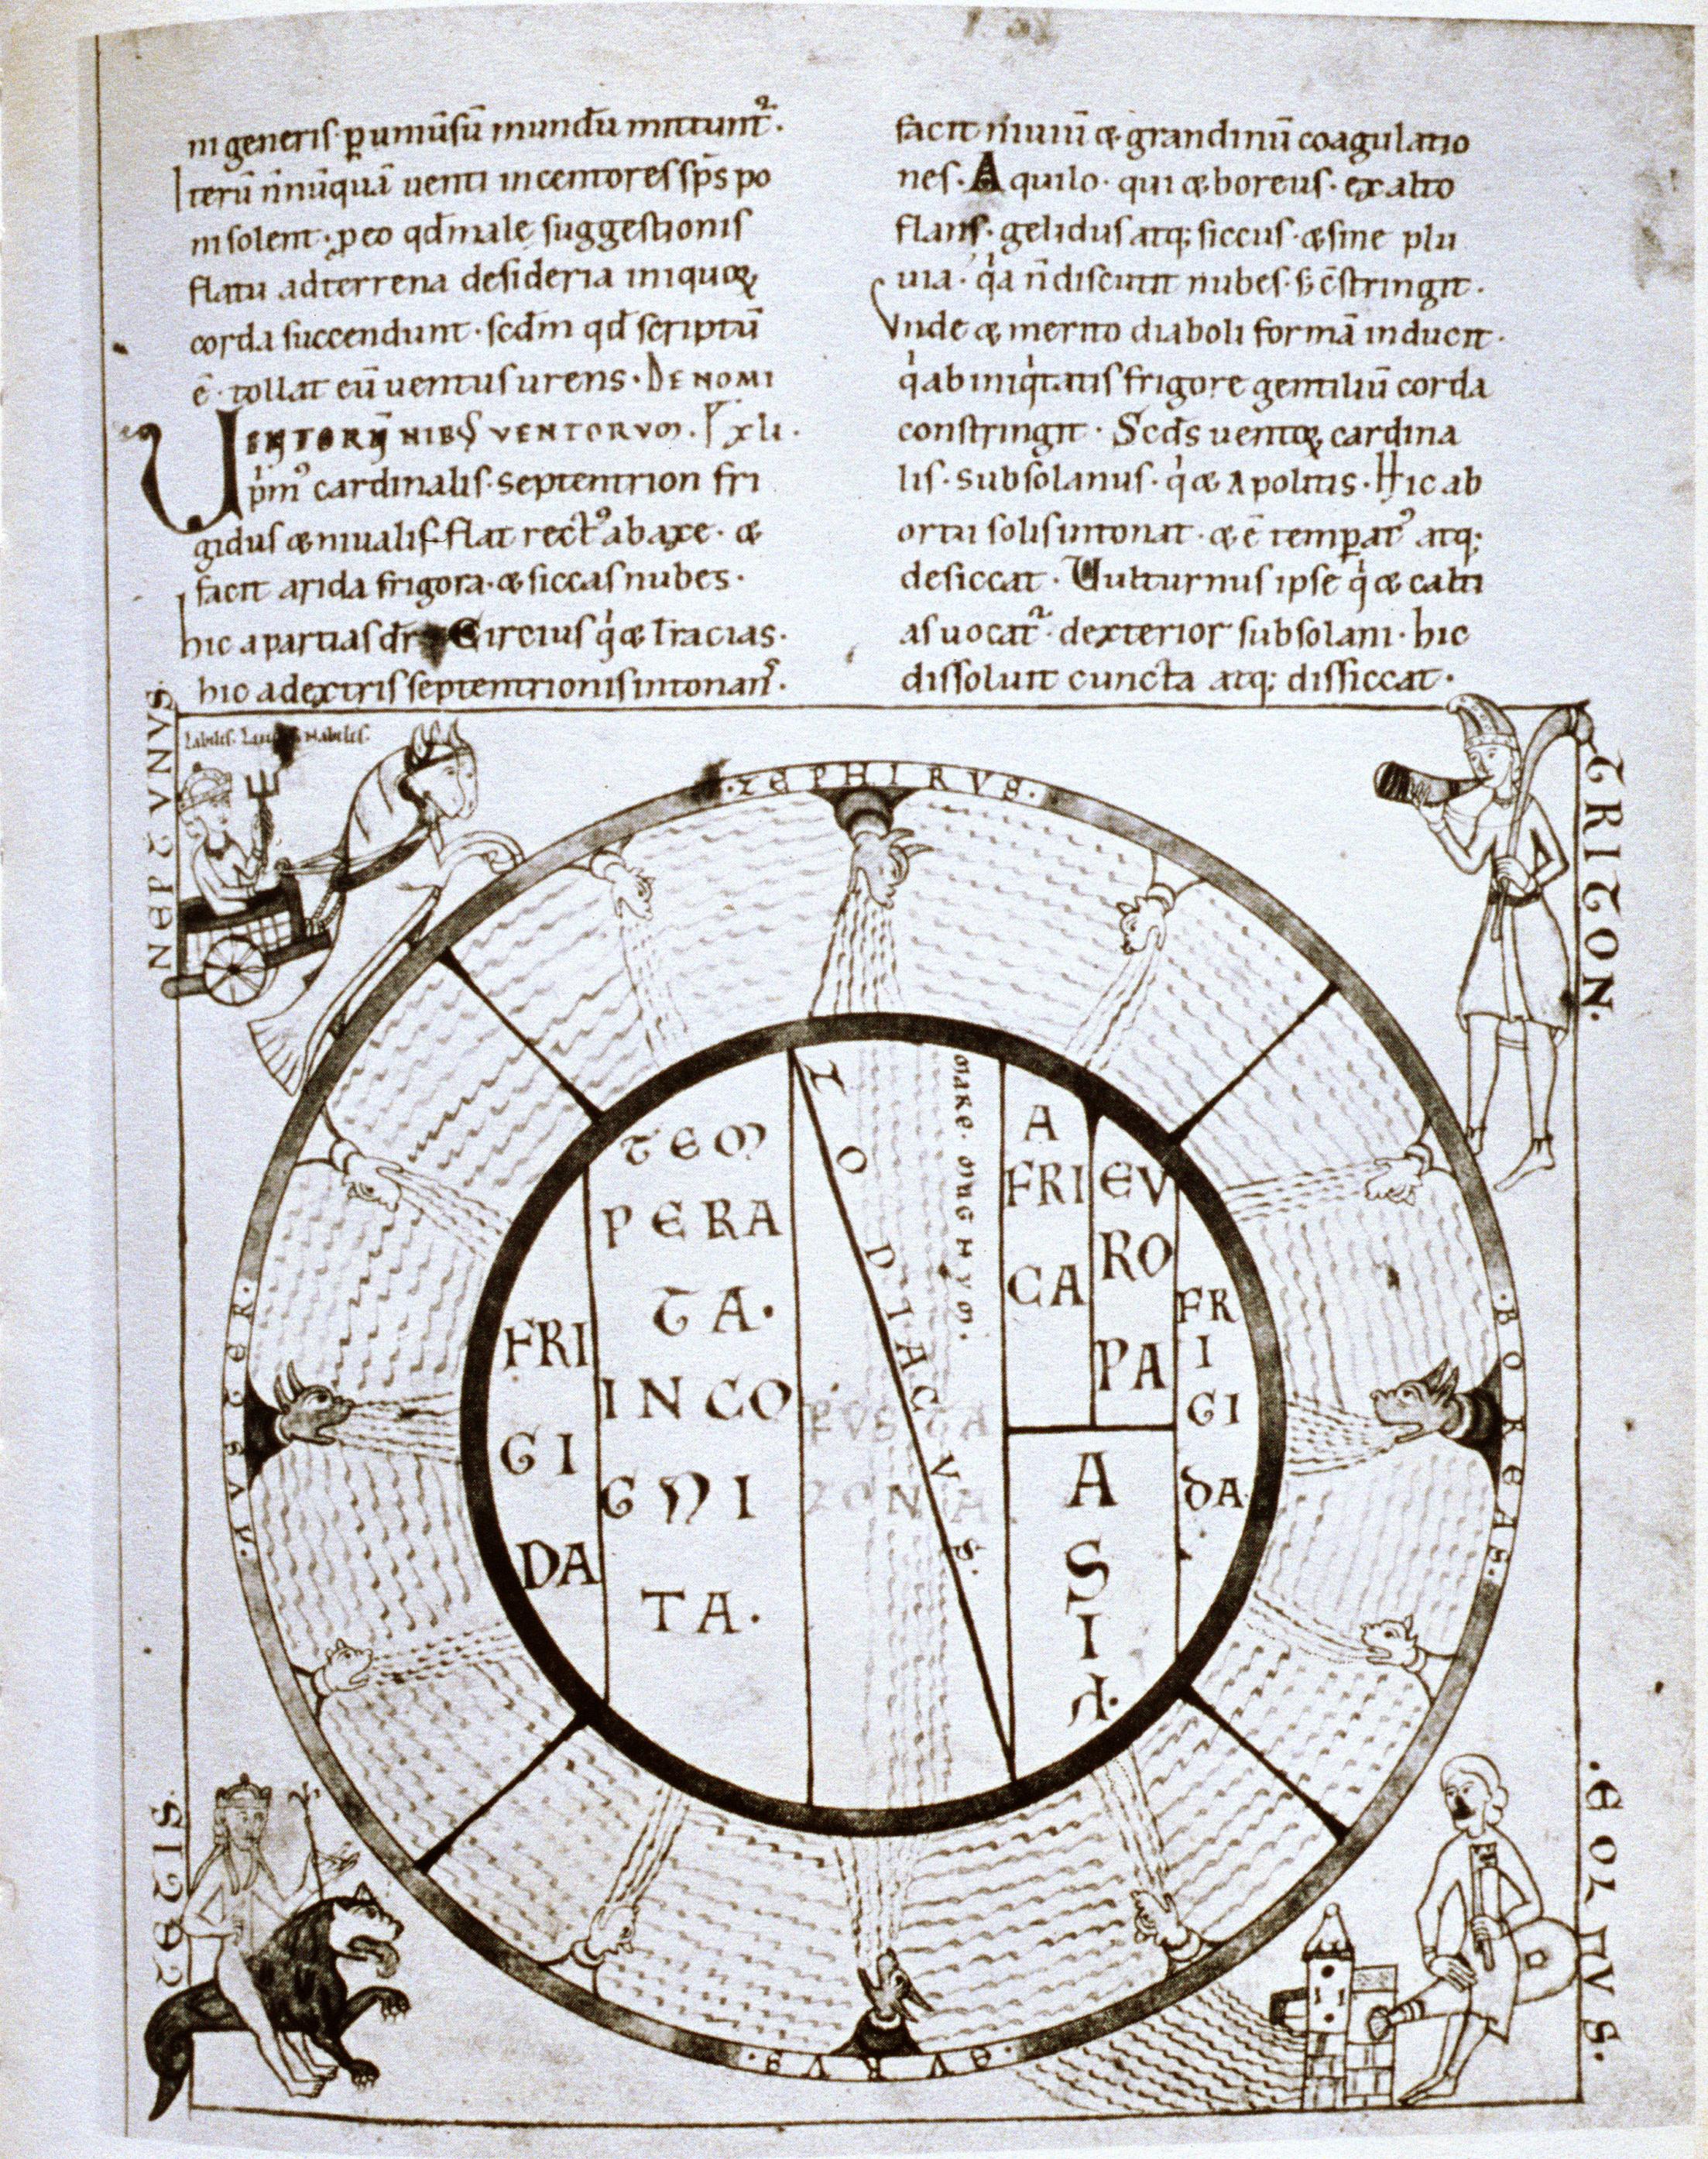 ni generis·p̲ uniũsũ mundũ mittunt᷑.
Iterũ ñnũquã uenti incentores sp̄s po
ni solent·p̲ eo qđ malę suggestionis
flatu ad terrena desideria iniquoꝝ
corda succendunt·scđm qđ scriptũ
ē·tollat eũ uentus urens·DE NOMI
VENTORỸ NIBꝰ VENTORVM. XLI.
p̍mꝰ cardinalis·septentrion fri
gidus & niualis·flat rectꝰ ab axe·&
facit arida frigora·& siccas nubes·
hic apartias dr̄ Circius q̍ & Tracias·
hic a dextris septentrionis intonanſ·
facit niuiũ & grandinũ coagulatio
nes·Aquilo·qui & boreus·ex alto
flans·gelidus atq; siccus·& sine plu
uia·q̍a ñ discutit nubes·s; c̄stringit·
Vnde & merito diaboli formã inducit·
q̍ ab iniq̍tatis frigore gentiliũ corda
constringit·Scđs uentoꝝ cardina
lis·subsolanus·q̍ & apolitis·Hic ab
ortu solis intonat·& ē temp̲atꝰ atq;
desiccat·Uulturnus ipse q̍ & calti
as uocat᷑·dexterior subsolani·hic
dissoluit cuncta atq; dissiccat·
NEPTVNVS
TRITON·
·ZEPHIRVS·
ZODIACVS·
MARE·
A
FRI
CA
EV
RO
PA
TEM
PERA
TA·
INCO
GNI
TA·
FRI
GI
DA
FR
I
GI
DA·
A
S
I
A·
·BOREAS·
·AVSTER·
·EVRVS·
·EOLVS·